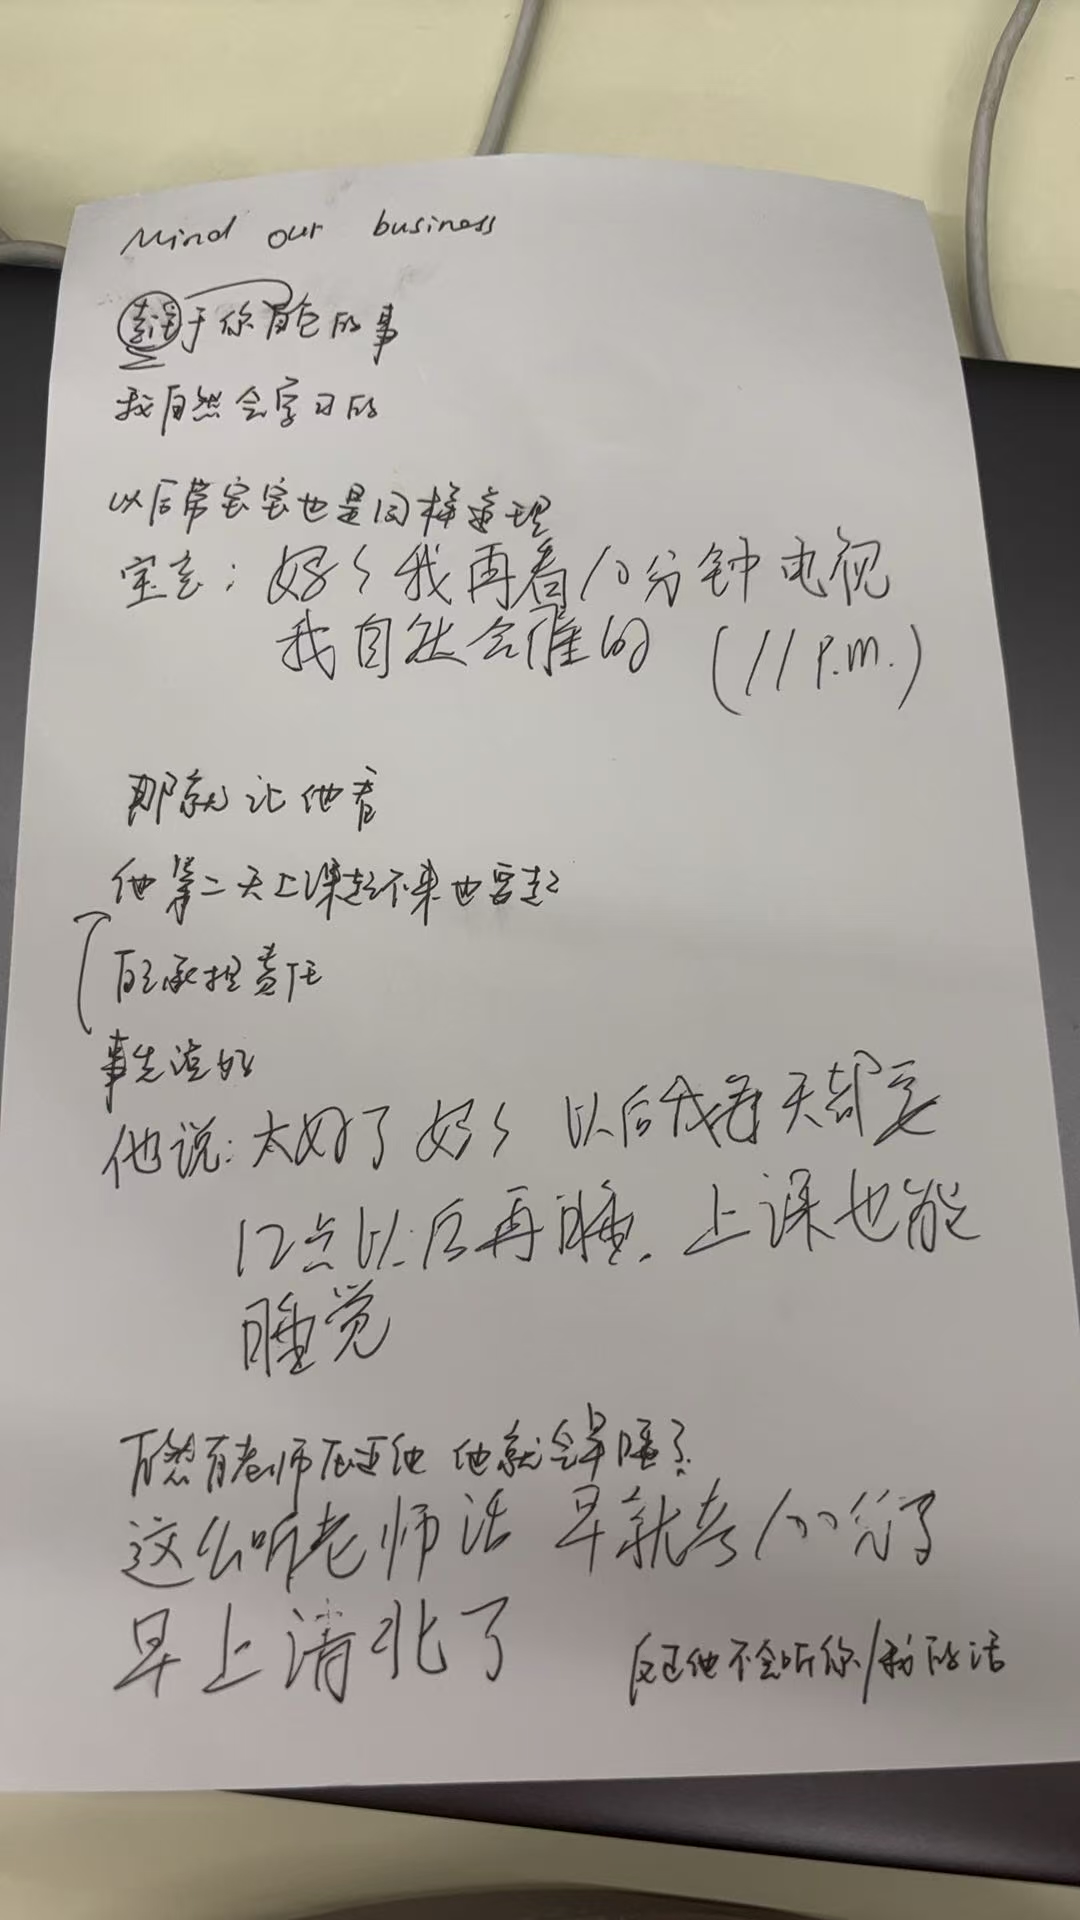 Mind our business
于你自己的事
我自然会学习的
以后带宝宝也是同样道理
宝宝：好好我再看10分钟电视
我自然会催的 (11 P.M.)
那就让他看
他第二天上课起不来也要起
自己承担责任
事先说好
他说：太好了 好好 以后我每天都玩
12点以后再睡，上课也能
睡觉
自然有老师在逼他 他就会早睡了
这么听老师话 早就考100分了
早上清北了
反正他不会听你/我的话